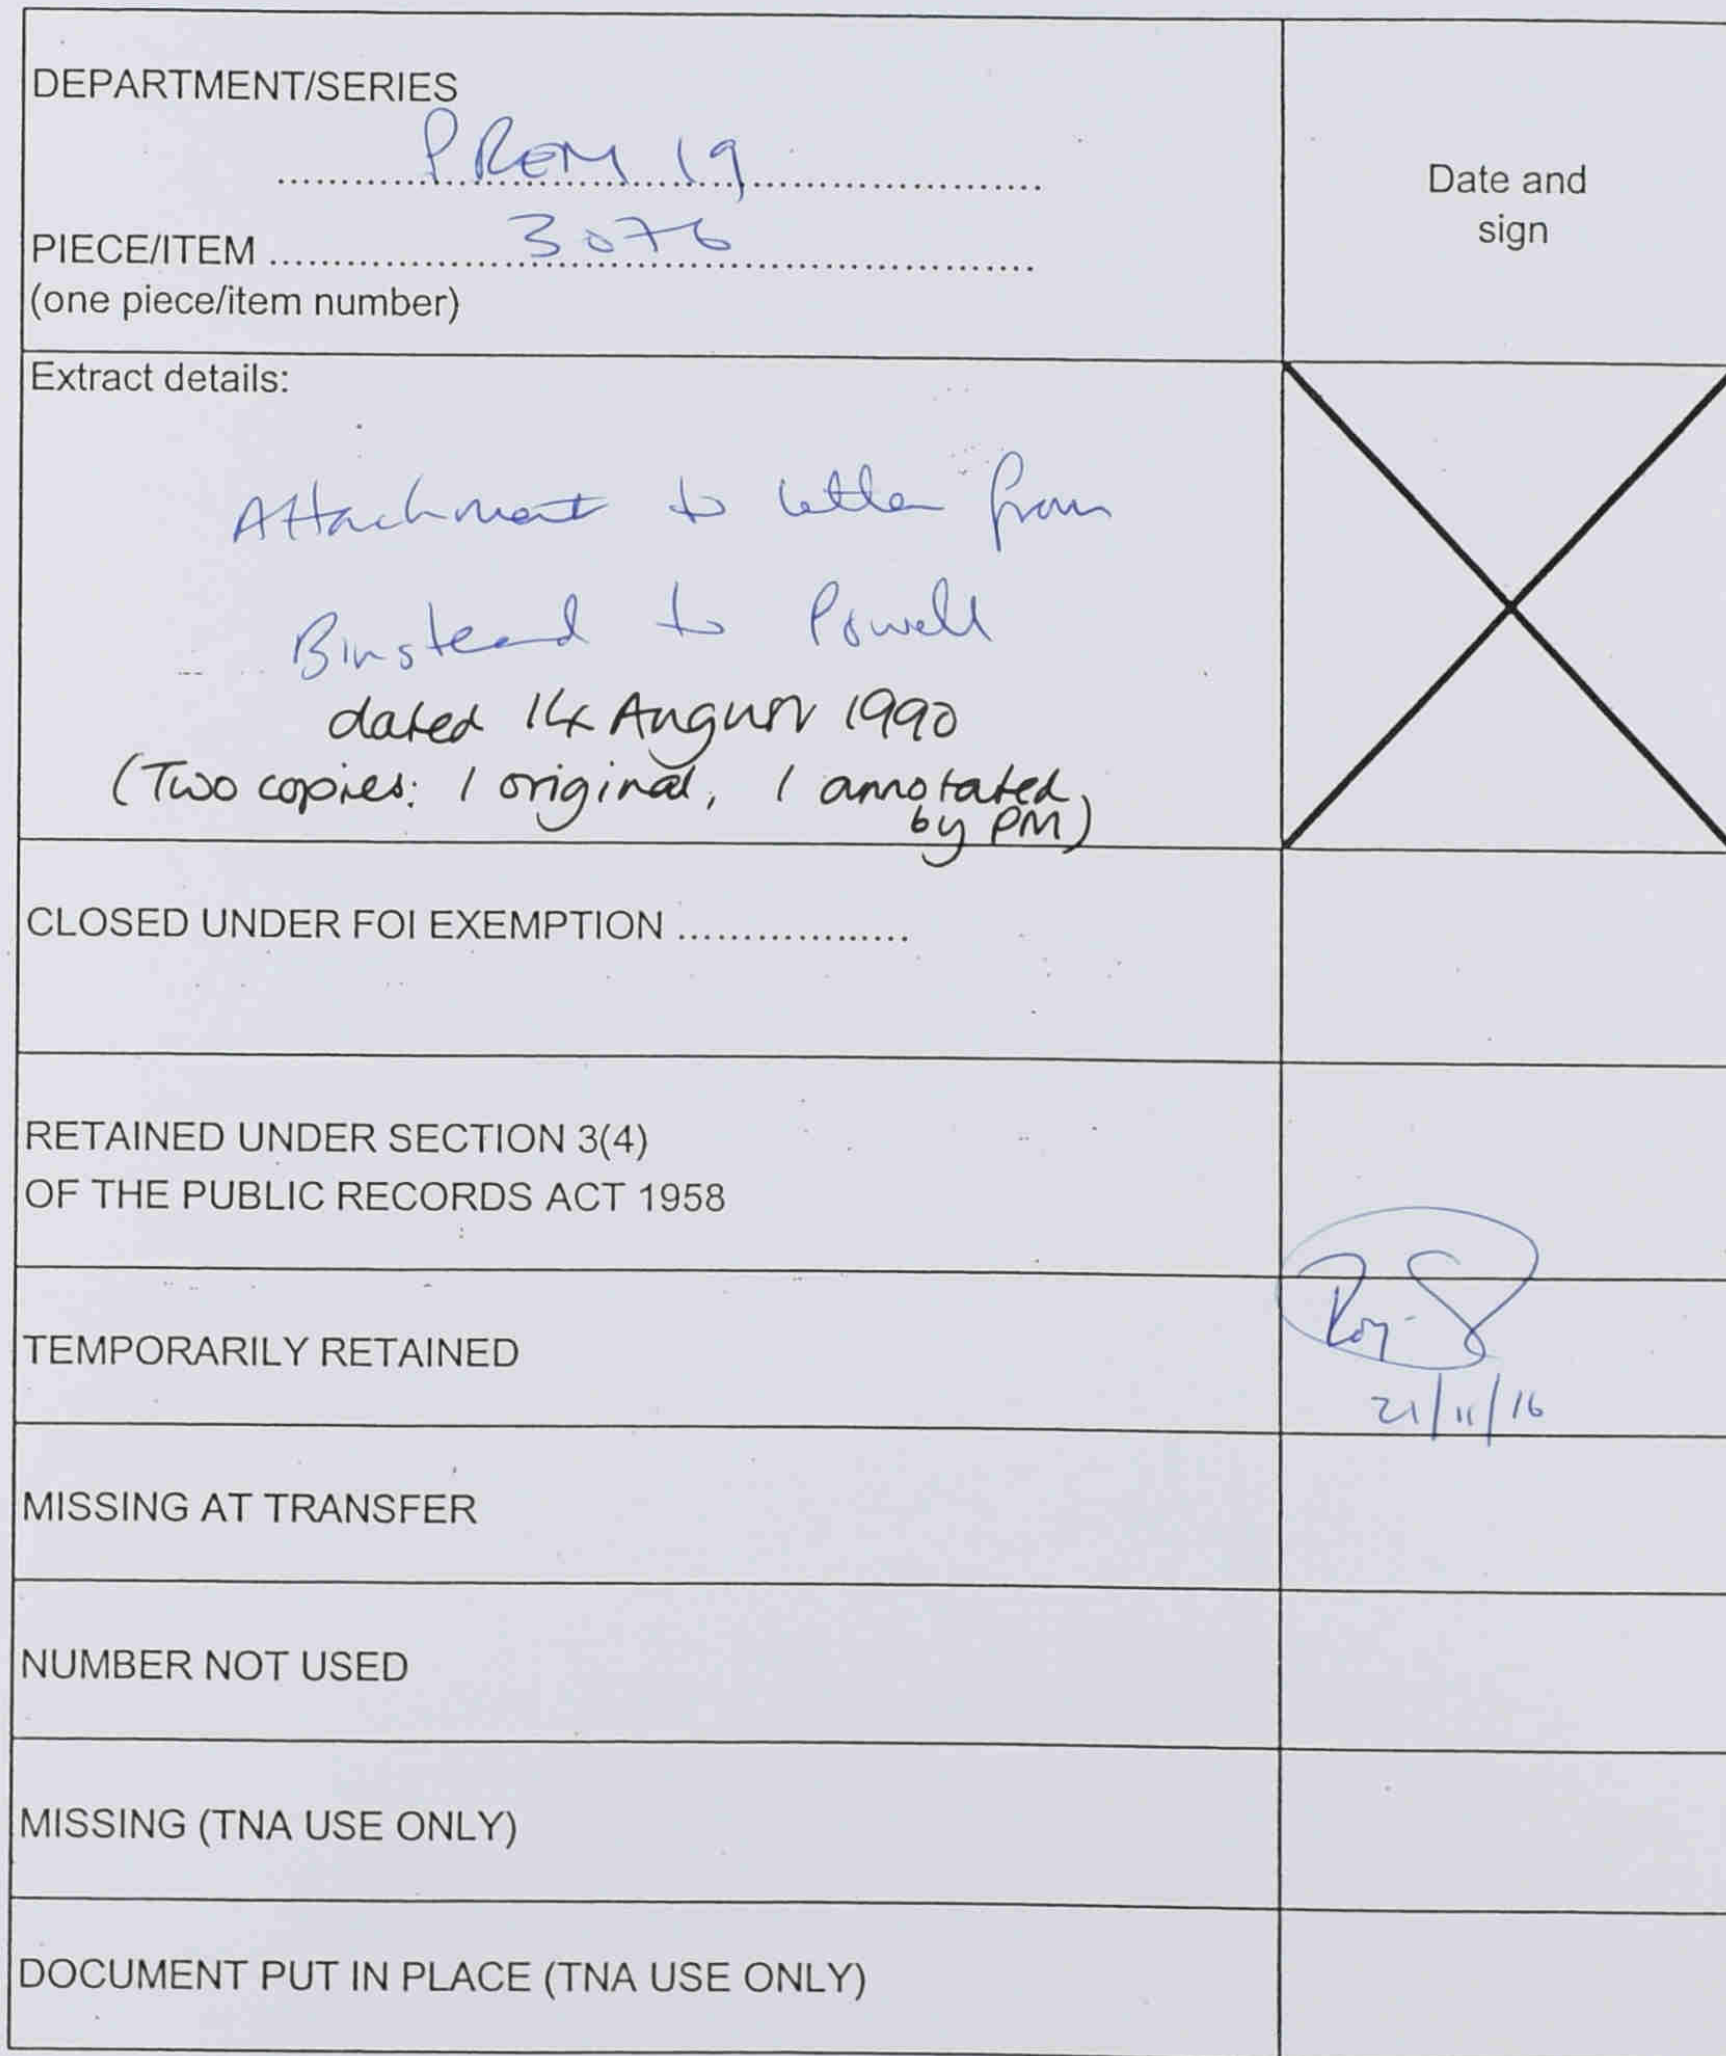 DEPARTMENT/SERIES
PREM 19
Date and
sign
PIECE/ITEM 3076
(one piece/item number)
Extract details:
Attachment to letter from
Binstead to Powell
dated 14 August 1990
(Two copies: 1 original, 1 annotated
by PM)
CLOSED UNDER FOI EXEMPTION ..................
RETAINED UNDER SECTION 3(4)
OF THE PUBLIC RECORDS ACT 1958
TEMPORARILY RETAINED
21/11/16
MISSING AT TRANSFER
NUMBER NOT USED
MISSING (TNA USE ONLY)
DOCUMENT PUT IN PLACE (TNA USE ONLY)